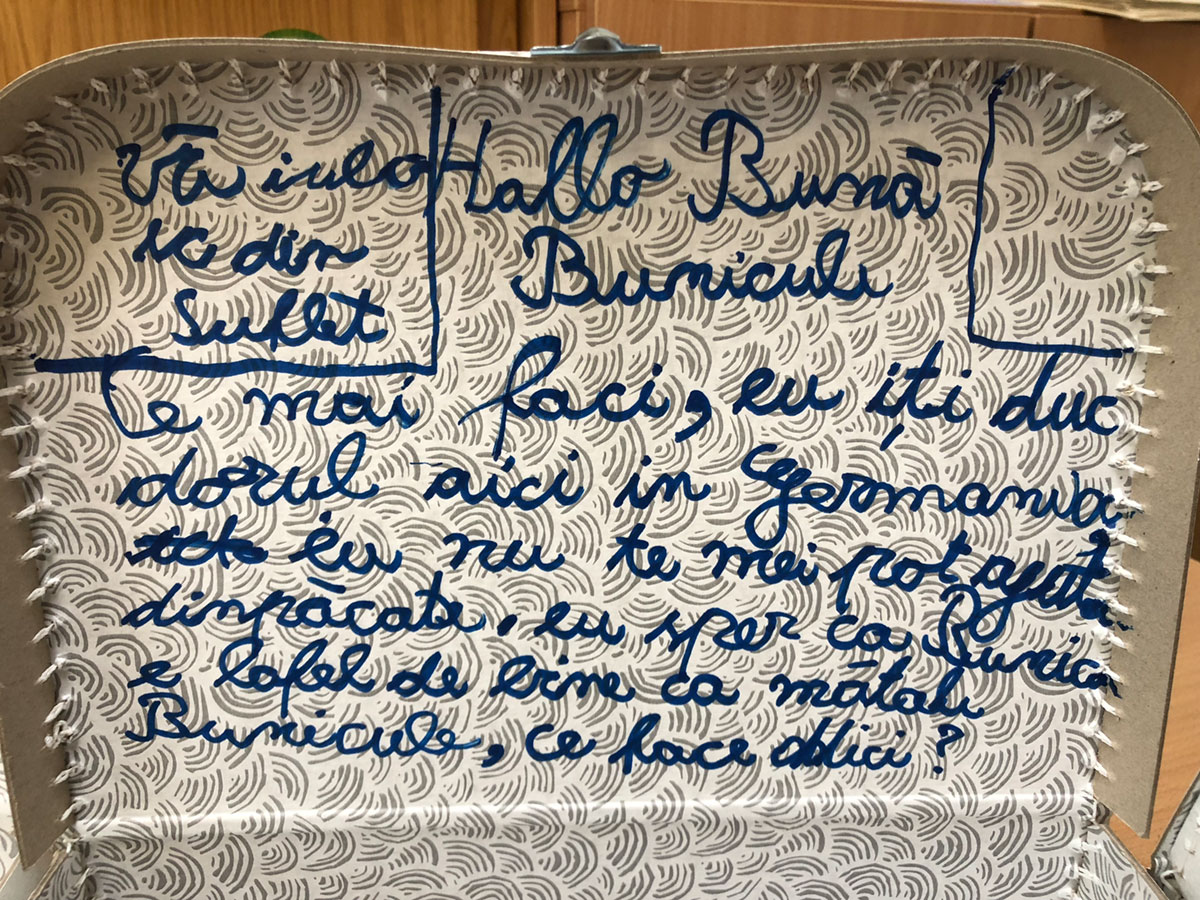 Vă iubo
sc din
Suflet
Hallo Bună
Bunicule
Ce mai faci, eu iți duc
dorul aici in Germania
eu nu te mei pot ajuta
dinpăcate. eu sper ca Bunica
e lafel de bine ca mătale
Bunicule, ce face